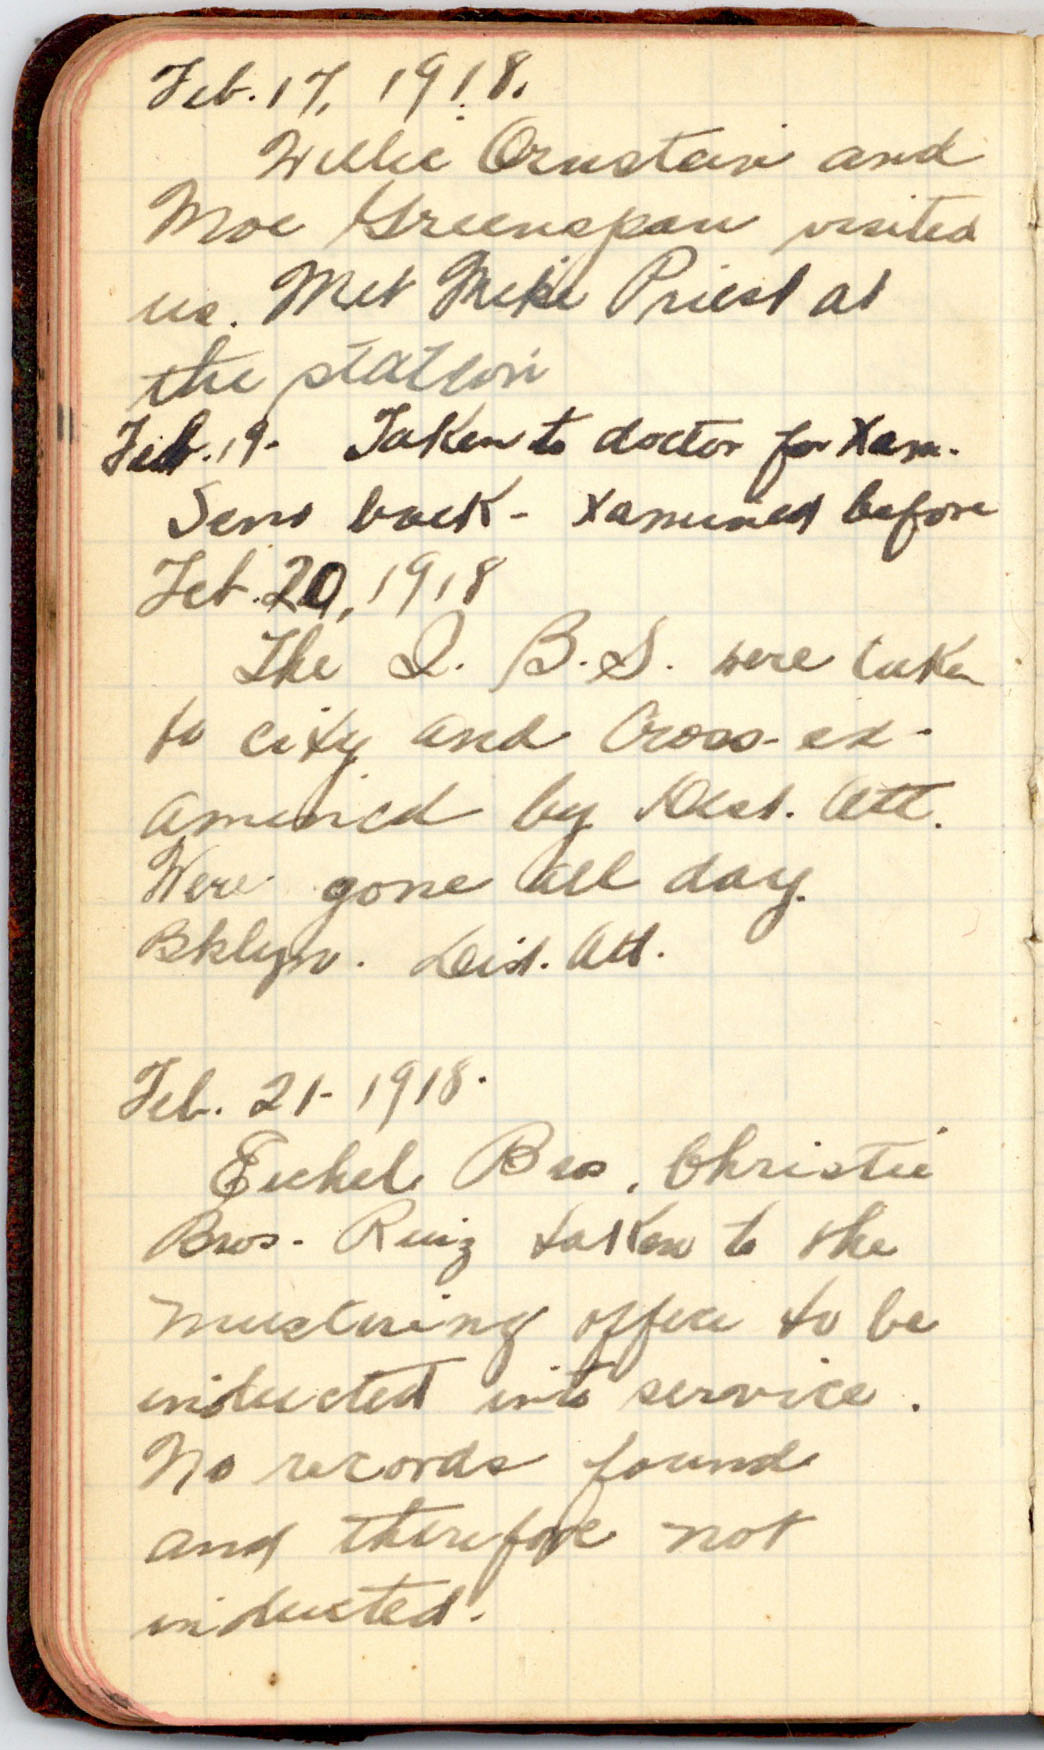 Feb. 17, 1918.
Willie Ornstein and
Moe Greenspan visited
us. Met Mike Priest at
the station
Feb. 19- Taken to doctor for Xam.
Sent back - Xamined before
Feb. 20, 1918
The I. B. S. were taken
to city and Cross-ex-
amined by Dist. Att.
Were gone all day.
Bklyn. Dist. Att.
Feb. 21- 1918.
Eichel Bros, Christie
Bros. Ruiz taken to the
mustering office to be
inducted into service.
No records found
and therefore not
inducted.